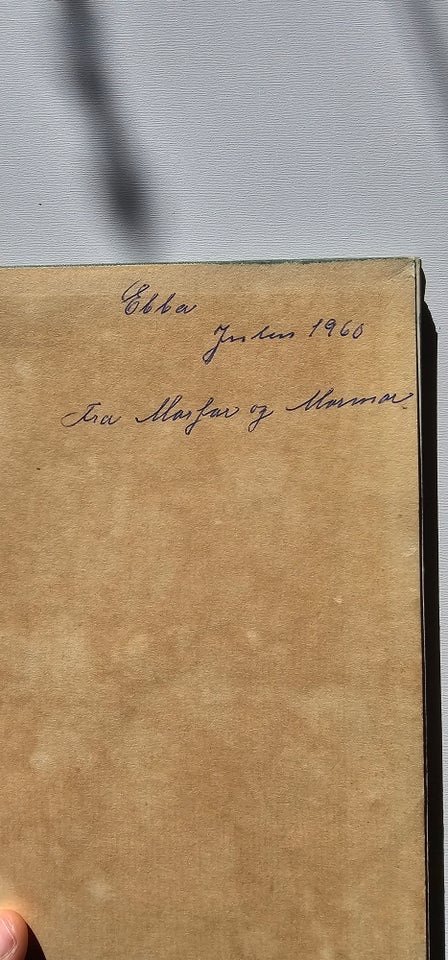 Ebba
Julen 1960
Fra Morfar og Mormor